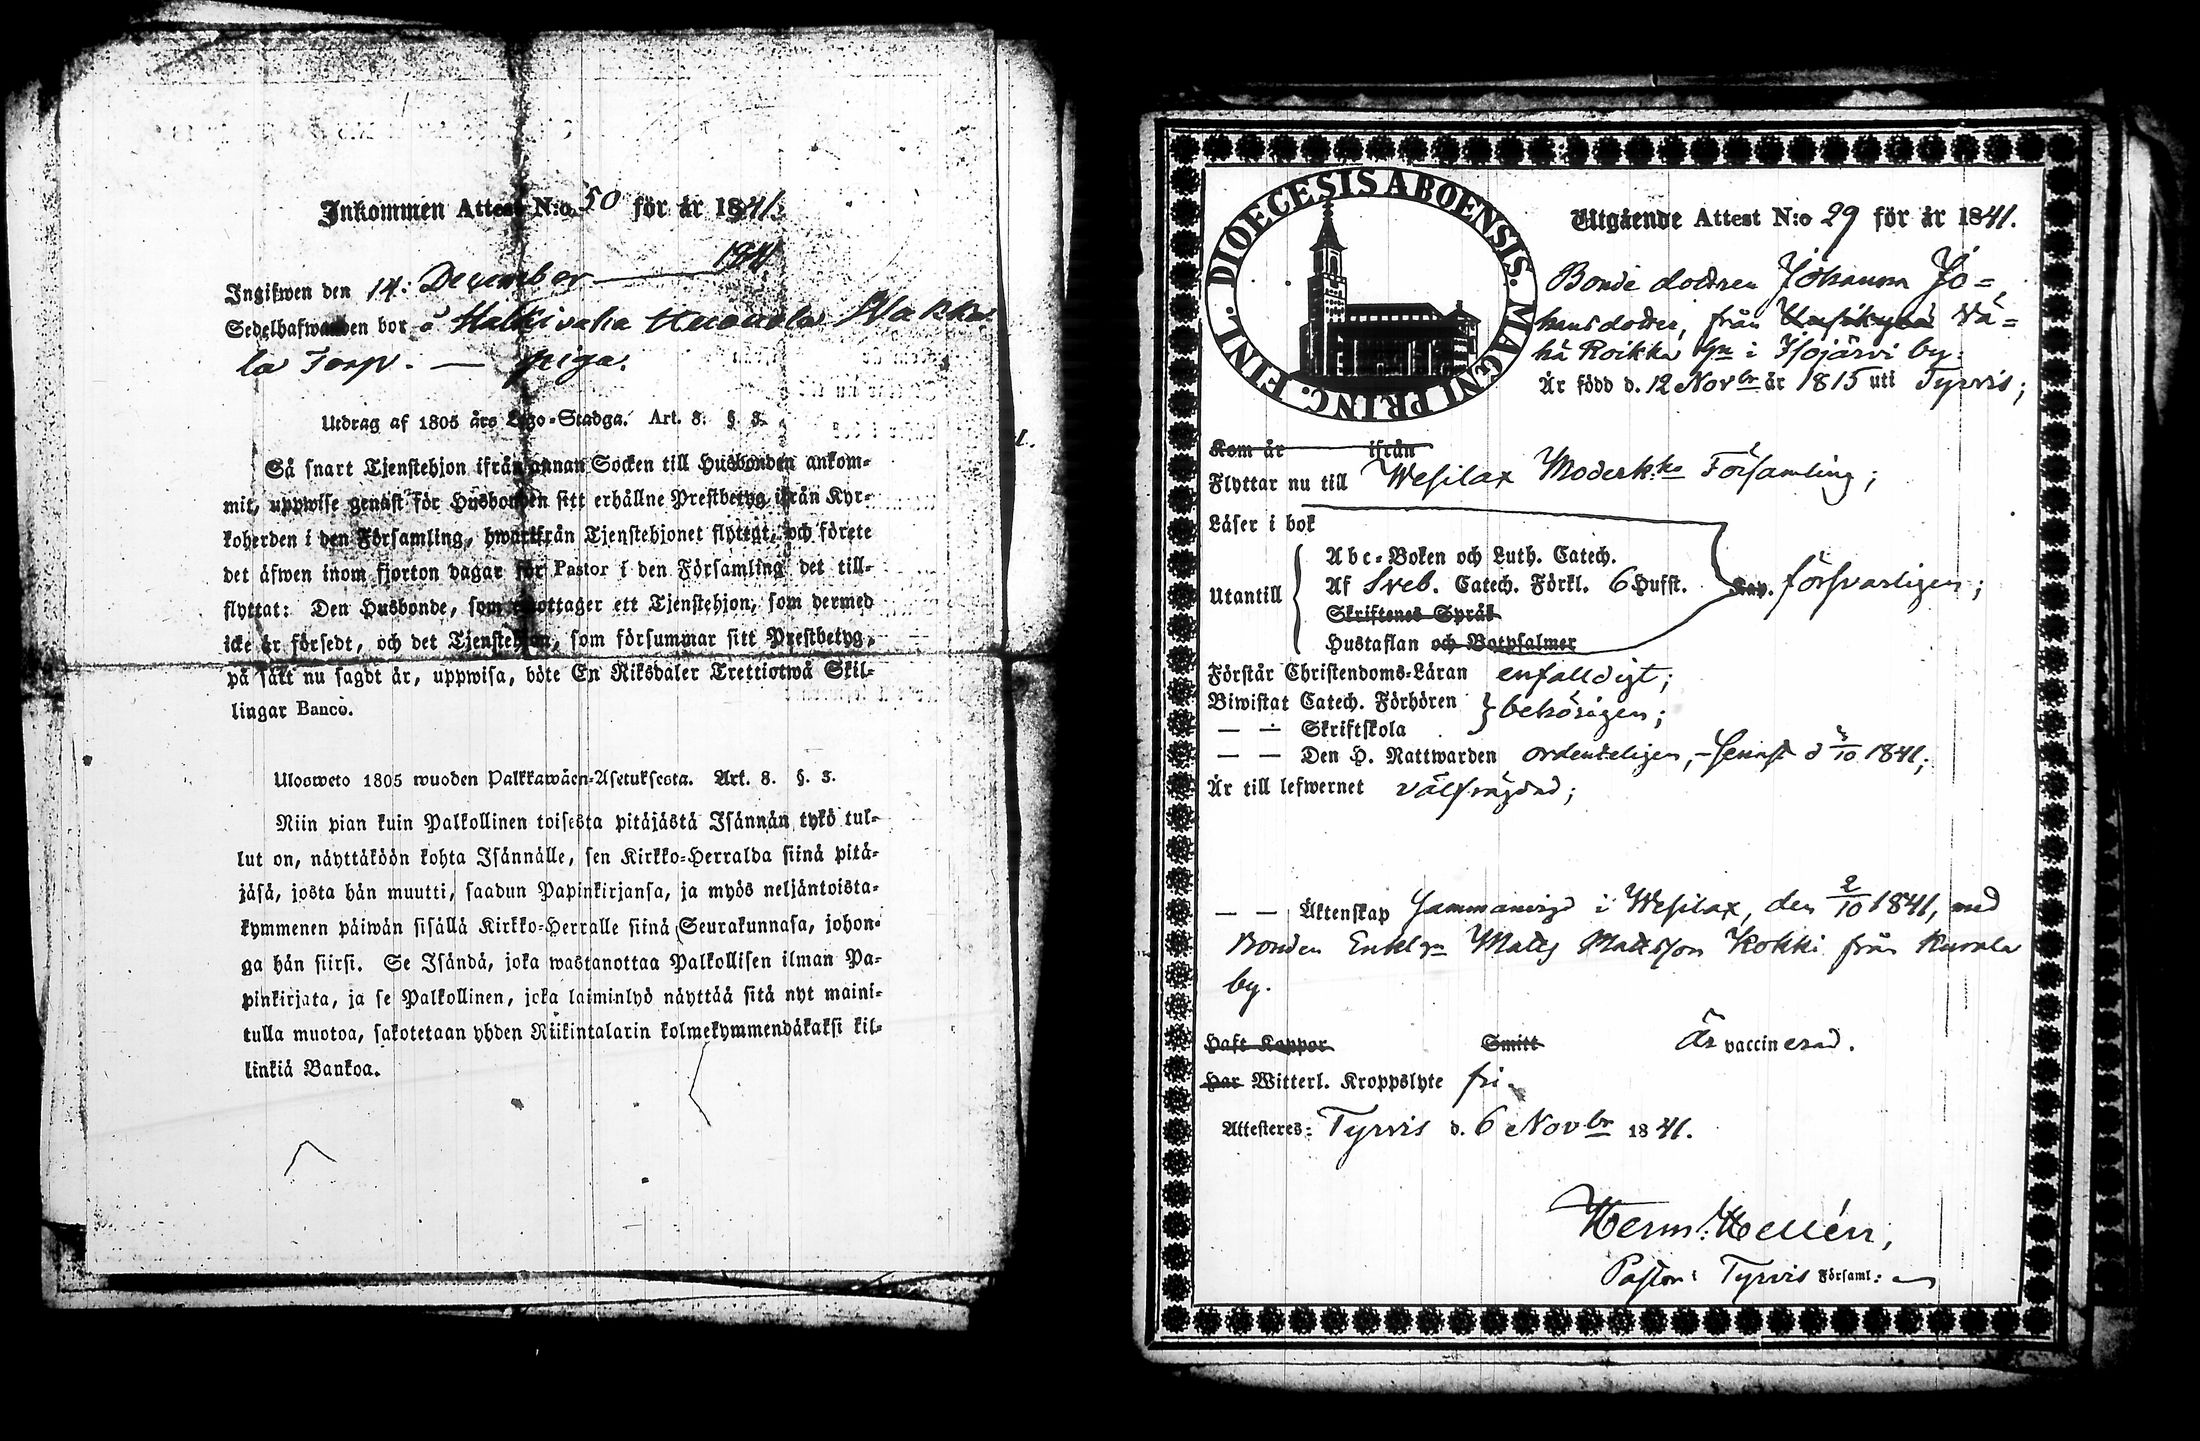 Inkommen Attest N:o 50 för år 1841.
Ingifwen den 14: December 1841
Sedelhafwanden bor å Halkivaha Uuonola Wakka-
la Torp. — piga.
Utdrag af 1805 års Lego-Stadga. Art. 8. § 3.
Så snart Tjenstehjon ifrån annan Socken till Husbonden ankom-
mit, uppwise genast för Husbonden sitt erhållne Prestbetyg ifrån Kyr-
koherden i den Församling, hwarifrån Tjenstehjonet flyttat, och förete
det äfwen inom fjorton dagar för Pastor i den Församling det till-
flyttat: Den Husbonde, som emottager ett Tjenstehjon, som dermed
icke är försedt, och det Tjenstehjon, som försummar sitt Prestbetyg,
på sätt nu sagdt är, uppwisa, böte En Riksdaler Trettiotwå Skil-
lingar Banco.
Ulosweto 1805 wuoden Palkkawäen-Asetuksesta. Art. 8. §. 3.
Niin pian kuin Palkollinen toisesta pitäjästä Isännän tykö tul-
lut on, näyttäköön kohta Isännälle, sen Kirkko-Herralda siinä pitä-
jäsä, josta hän muutti, saadun Papinkirjansa, ja myös neljäntoista-
kymmenen päiwän sisällä Kirkko-Herralle siinä Seurakunnasa, johon-
ga hän siirsi. Se Isändä, joka wastanottaa Palkollisen ilman Pa-
pinkirjata, ja se Palkollinen, joka laiminlyö näyttää sitä nyt maini-
tulla muotoa, sakotetaan yhden Riikintalarin kolmekymmendäkaksi kil-
linkiä Bankoa.
DIOECESIS ABOENSIS. MAGNI PRINC. FINL.
Utgående Attest N:o 29 för år 1841.
Bonde dottren Johanna Jo-
hansdotter, från Wä-
hä Roikka hn i Isojärvi by.
Är född d. 12 Novbr år 1815 uti Tyrvis;
Kom år ifrån
Flyttar nu till Wesilax Moderk:ko Församling;
Läser i bok
Utantill
Abc-Boken och Luth. Catech.
Af Sveb. Catech. Förkl. 6 Hufst. försvarligen;
Skriftenes Språk
Hustaflan och Botpsalmer
Förstår Christendoms-Läran enfalldigt;
Biwistat Catech. Förhören behörigen;
— — Skriftskola
— — Den H. Nattwarden ordenteligen, – senast d 3/10 1841;
Är till lefwernet välfrägdad;
— — Äktenskap Sammanvigd i Wesilax, den 2/10 1841, med
Bonden Enkl:n Matts Mattsson Kokki från Kurala
by.
Haft Koppor Smitt Är vaccinerad.
Har Witterl. Kroppslyte fri.
Attesteres: Tyrvis d. 6 Novbr 1841.
Herm: Hellén,
Pastor i Tyrvis Församl: